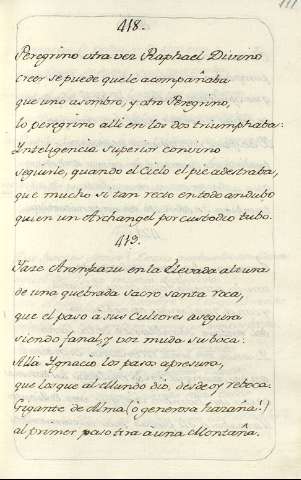 418.
Peregrino otra vez Raphael Divino
creer se puede que le acompañaba
que uno asombro, y otro Peregrino,
lo peregrino alli en los dos triumphaba:
Inteligencia superior convino
seguirle, quando el Cielo el pie adestraba,
que mucho si tan recto en todo andubo
quien un Archangel por custodio tubo.
419.
Yaze Aranzazu en la Elevada altura
de una quebrada sacro santa roca,
que el paso á sus Cultores asegura
siendo fanal, y voz muda su boca:
Allà Ignacio los pasos apresura,
que los que al Mundo dio, desde oy reboca.
Gigante de Alma (ò generosa hazaña!)
al primer paso tira à una Montaña.